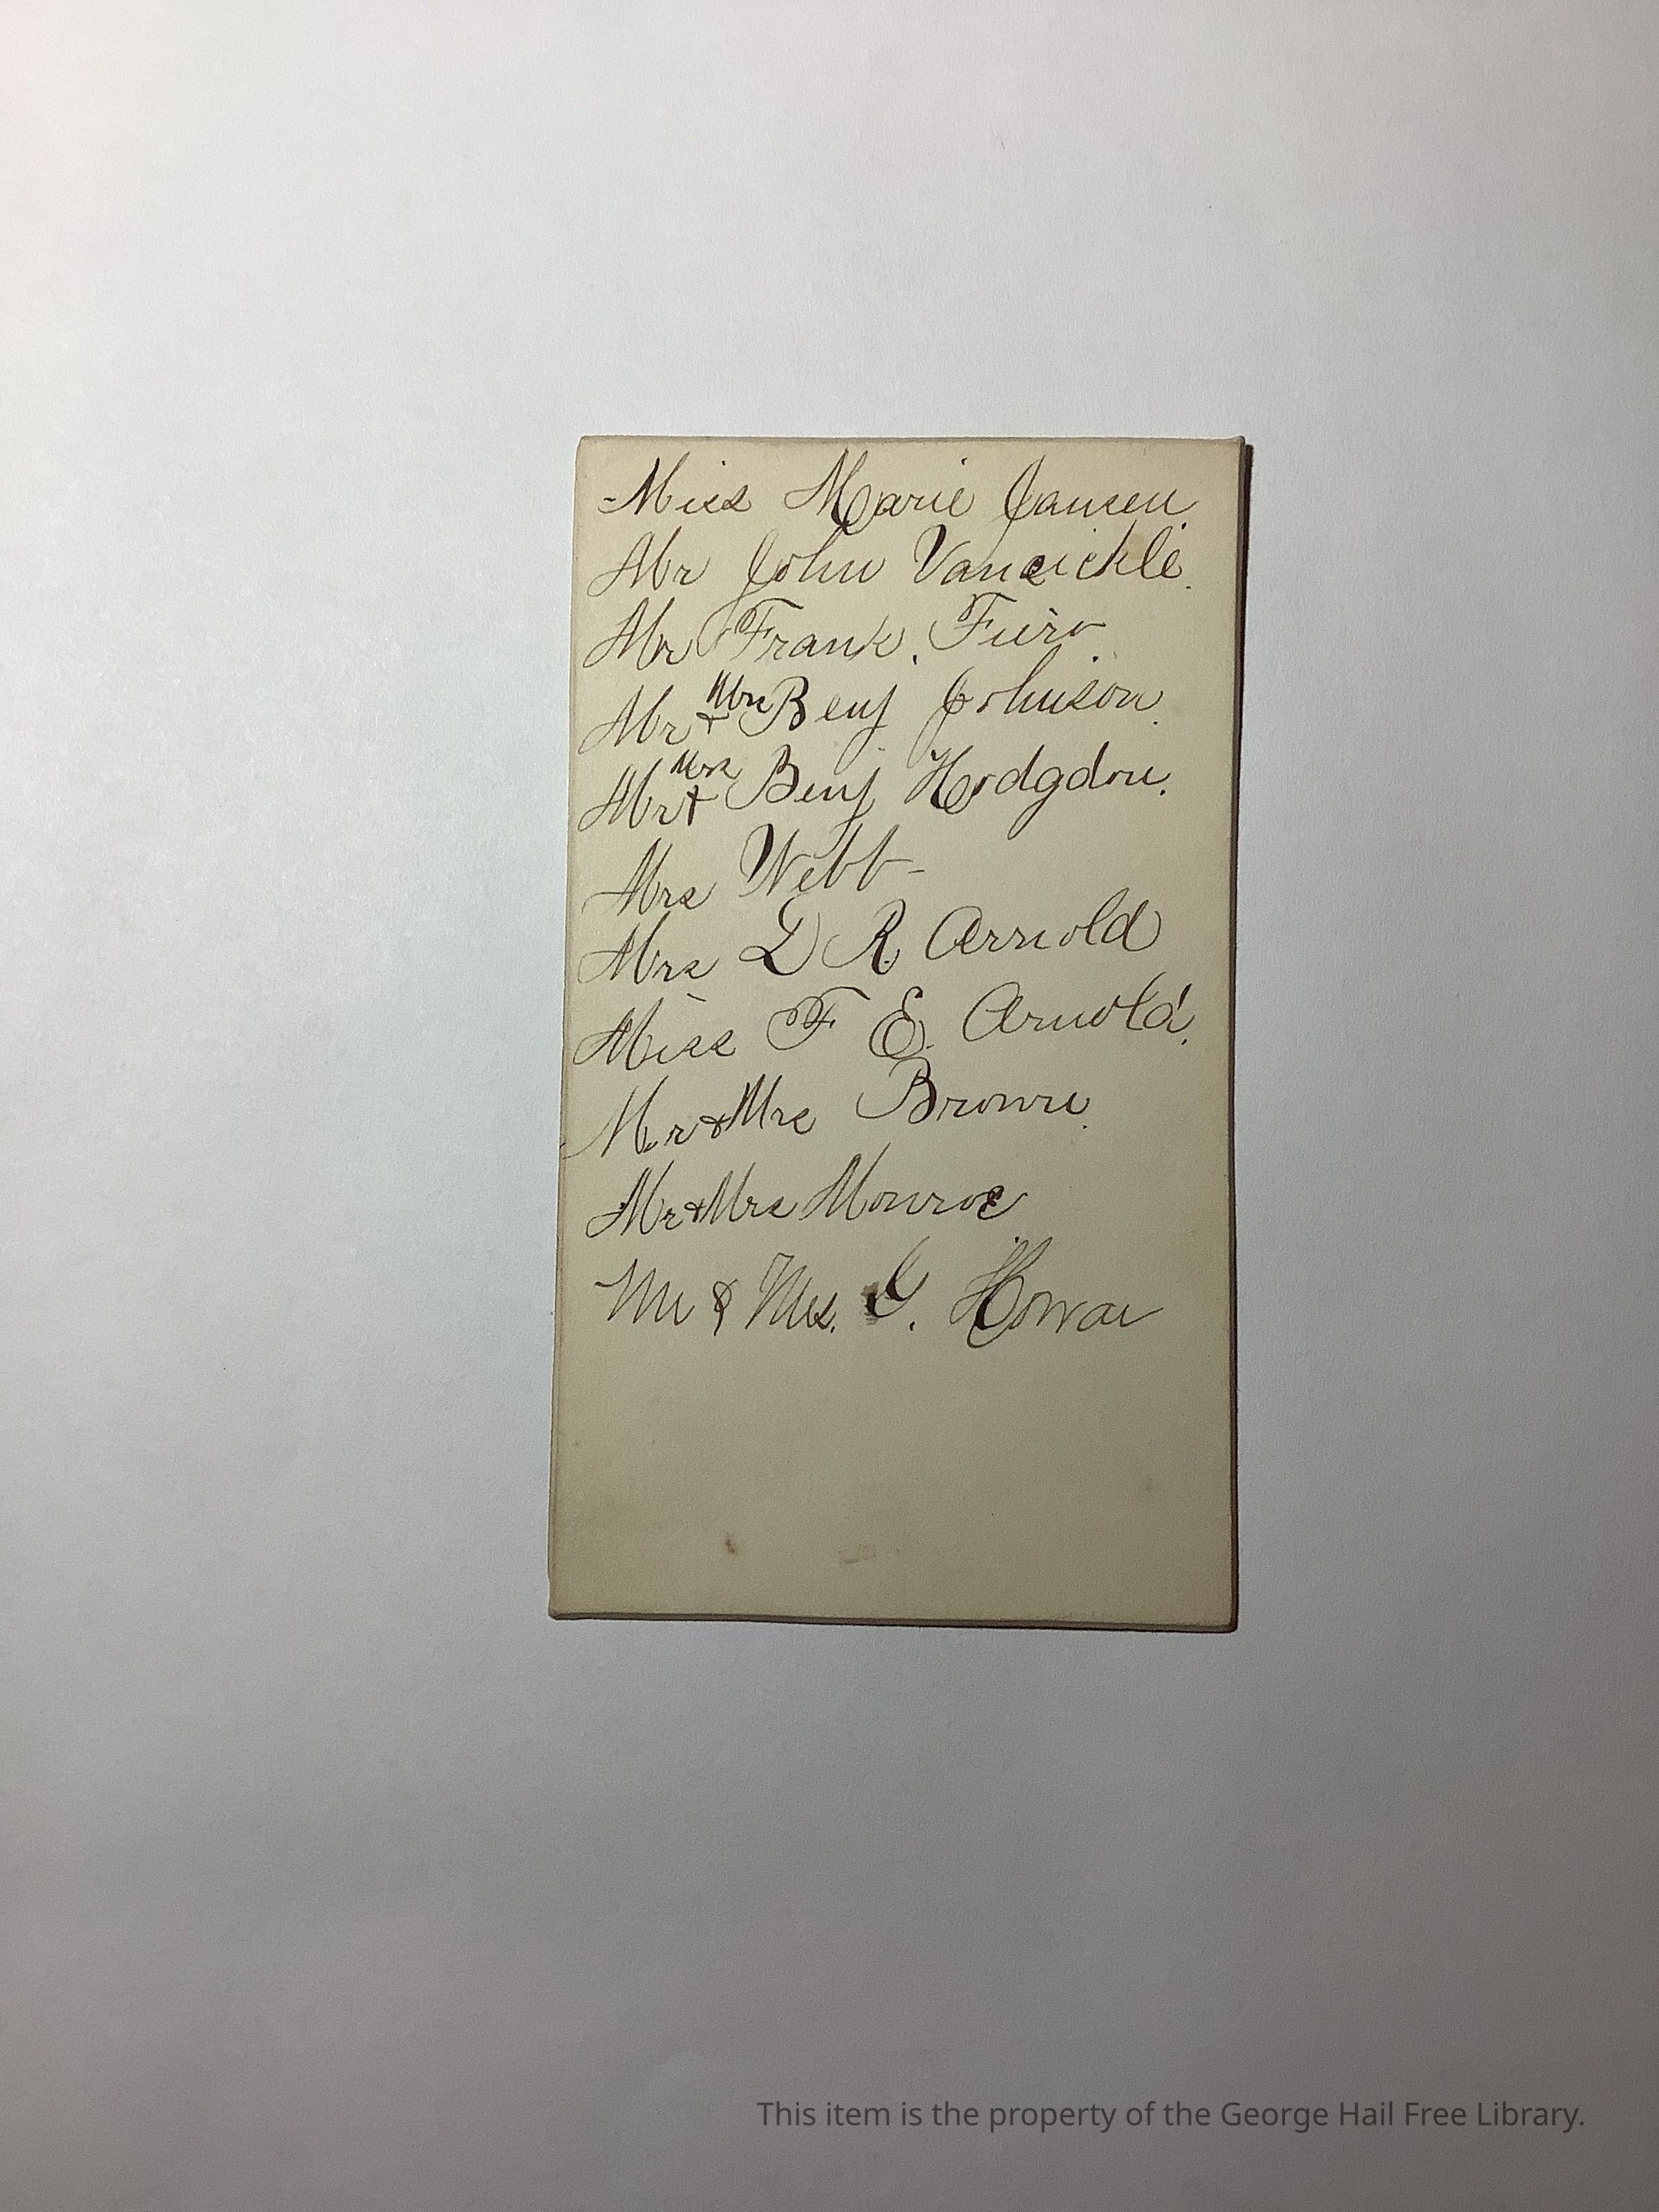 Miss Marie Jansen
Mr John Vansickle.
Mr Frank. Fiero
Mr & Mrs Benj Johnson.
Mr & Mrs Benj Hodgdon.
Mrs Webb-
Mrs D R. Arnold
Miss F E. Arnold.
Mr & Mrs Brown.
Mr & Mrs Monroe
Mr & Mrs. G.
This item is the property of the George Hail Free Library.